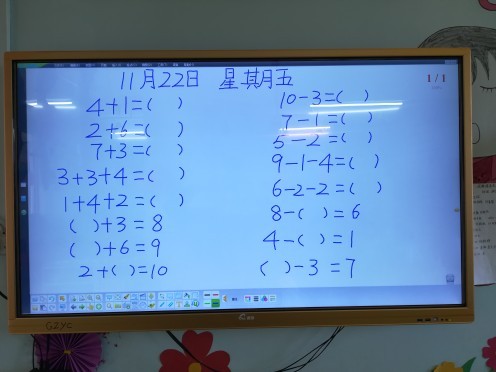 1/1
11月22日 星期五
4+1=( )
2+6=( )
7+3=( )
3+3+4=( )
1+4+2=( )
( )+3=8
( )+6=9
2+( )=10
10-3=( )
7-1=( )
5-2=( )
9-1-4=( )
6-2-2=( )
8-( )=6
4-( )=1
( )-3=7
GZYC